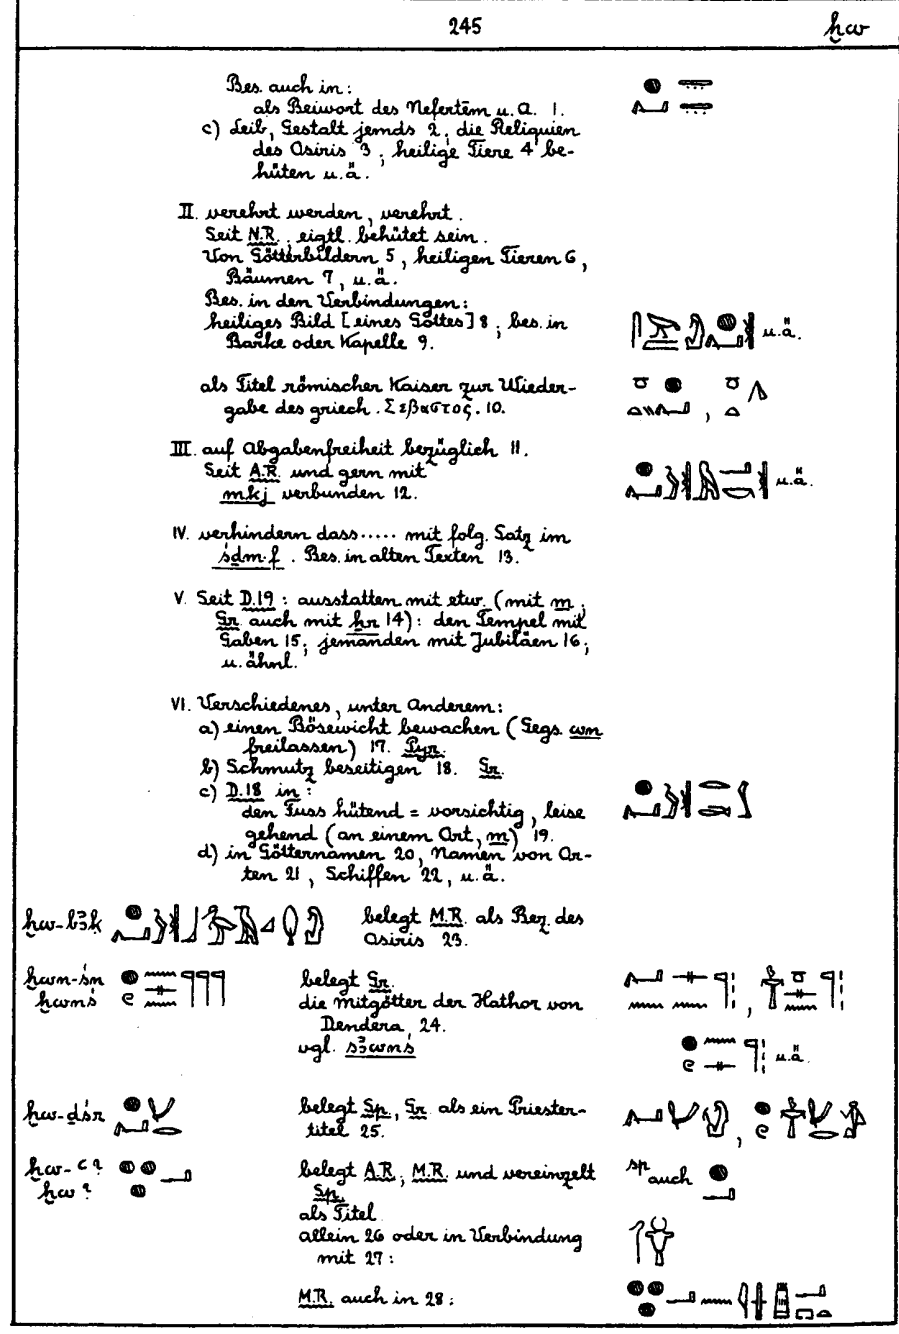 245 ḫw
Bes. auch in:
als Beiwort des Nefertēm u. A. 1.
c) Leib, Gestalt jemds 2, die Reliquien
des Osiris 3, heilige Tiere 4 be-
hüten u. ä.
II. verehrt werden, verehrt.
Seit N.R., eigtl. behütet sein.
Von Götterbildern 5, heiligen Tieren 6,
Bäumen 7, u. ä.
Bes. in den Verbindungen:
heiliges Bild [eines Gottes] 8; bes. in
Barke oder Kapelle 9. u. ä.
als Titel römischer Kaiser zur Wieder-
gabe des griech. Σεβαστος. 10.
III. auf Abgabenfreiheit bezüglich 11.
Seit A.R. und gern mit
mkj verbunden 12. u. ä.
IV. verhindern dass..... mit folg. Satz im
śḏm·f. Bes. in alten Texten 13.
V. Seit D.19: ausstatten mit etw. (mit m;
Gr. auch mit ẖr 14): den Tempel mit
Gaben 15; jemanden mit Jubiläen 16;
u. ähnl.
VI. Verschiedenes, unter Anderem:
a) einen Bösewicht bewachen (Gegs. wn
freilassen) 17. Pyr.
b) Schmutz beseitigen 18. Gr.
c) D.18 in:
den Fuss hütend = vorsichtig, leise
gehend (an einem Ort, m) 19.
d) in Götternamen 20, Namen von Or-
ten 21, Schiffen 22, u. ä.
ḫw-bꜣk belegt M.R. als Bez. des
Osiris 23.
ḫwn-śn belegt Gr.
ḫwnś die Mitgötter der Hathor von
Dendera, 24.
vgl. sꜣwnś u. ä.
ḫw-ḏśr belegt Sp., Gr. als ein Priester-
titel 25.
ḫw-ꜥ? belegt A.R., M.R. und vereinzelt sp auch
ḫw? Sp.
als Titel
allein 26 oder in Verbindung
mit 27:
M.R. auch in 28: